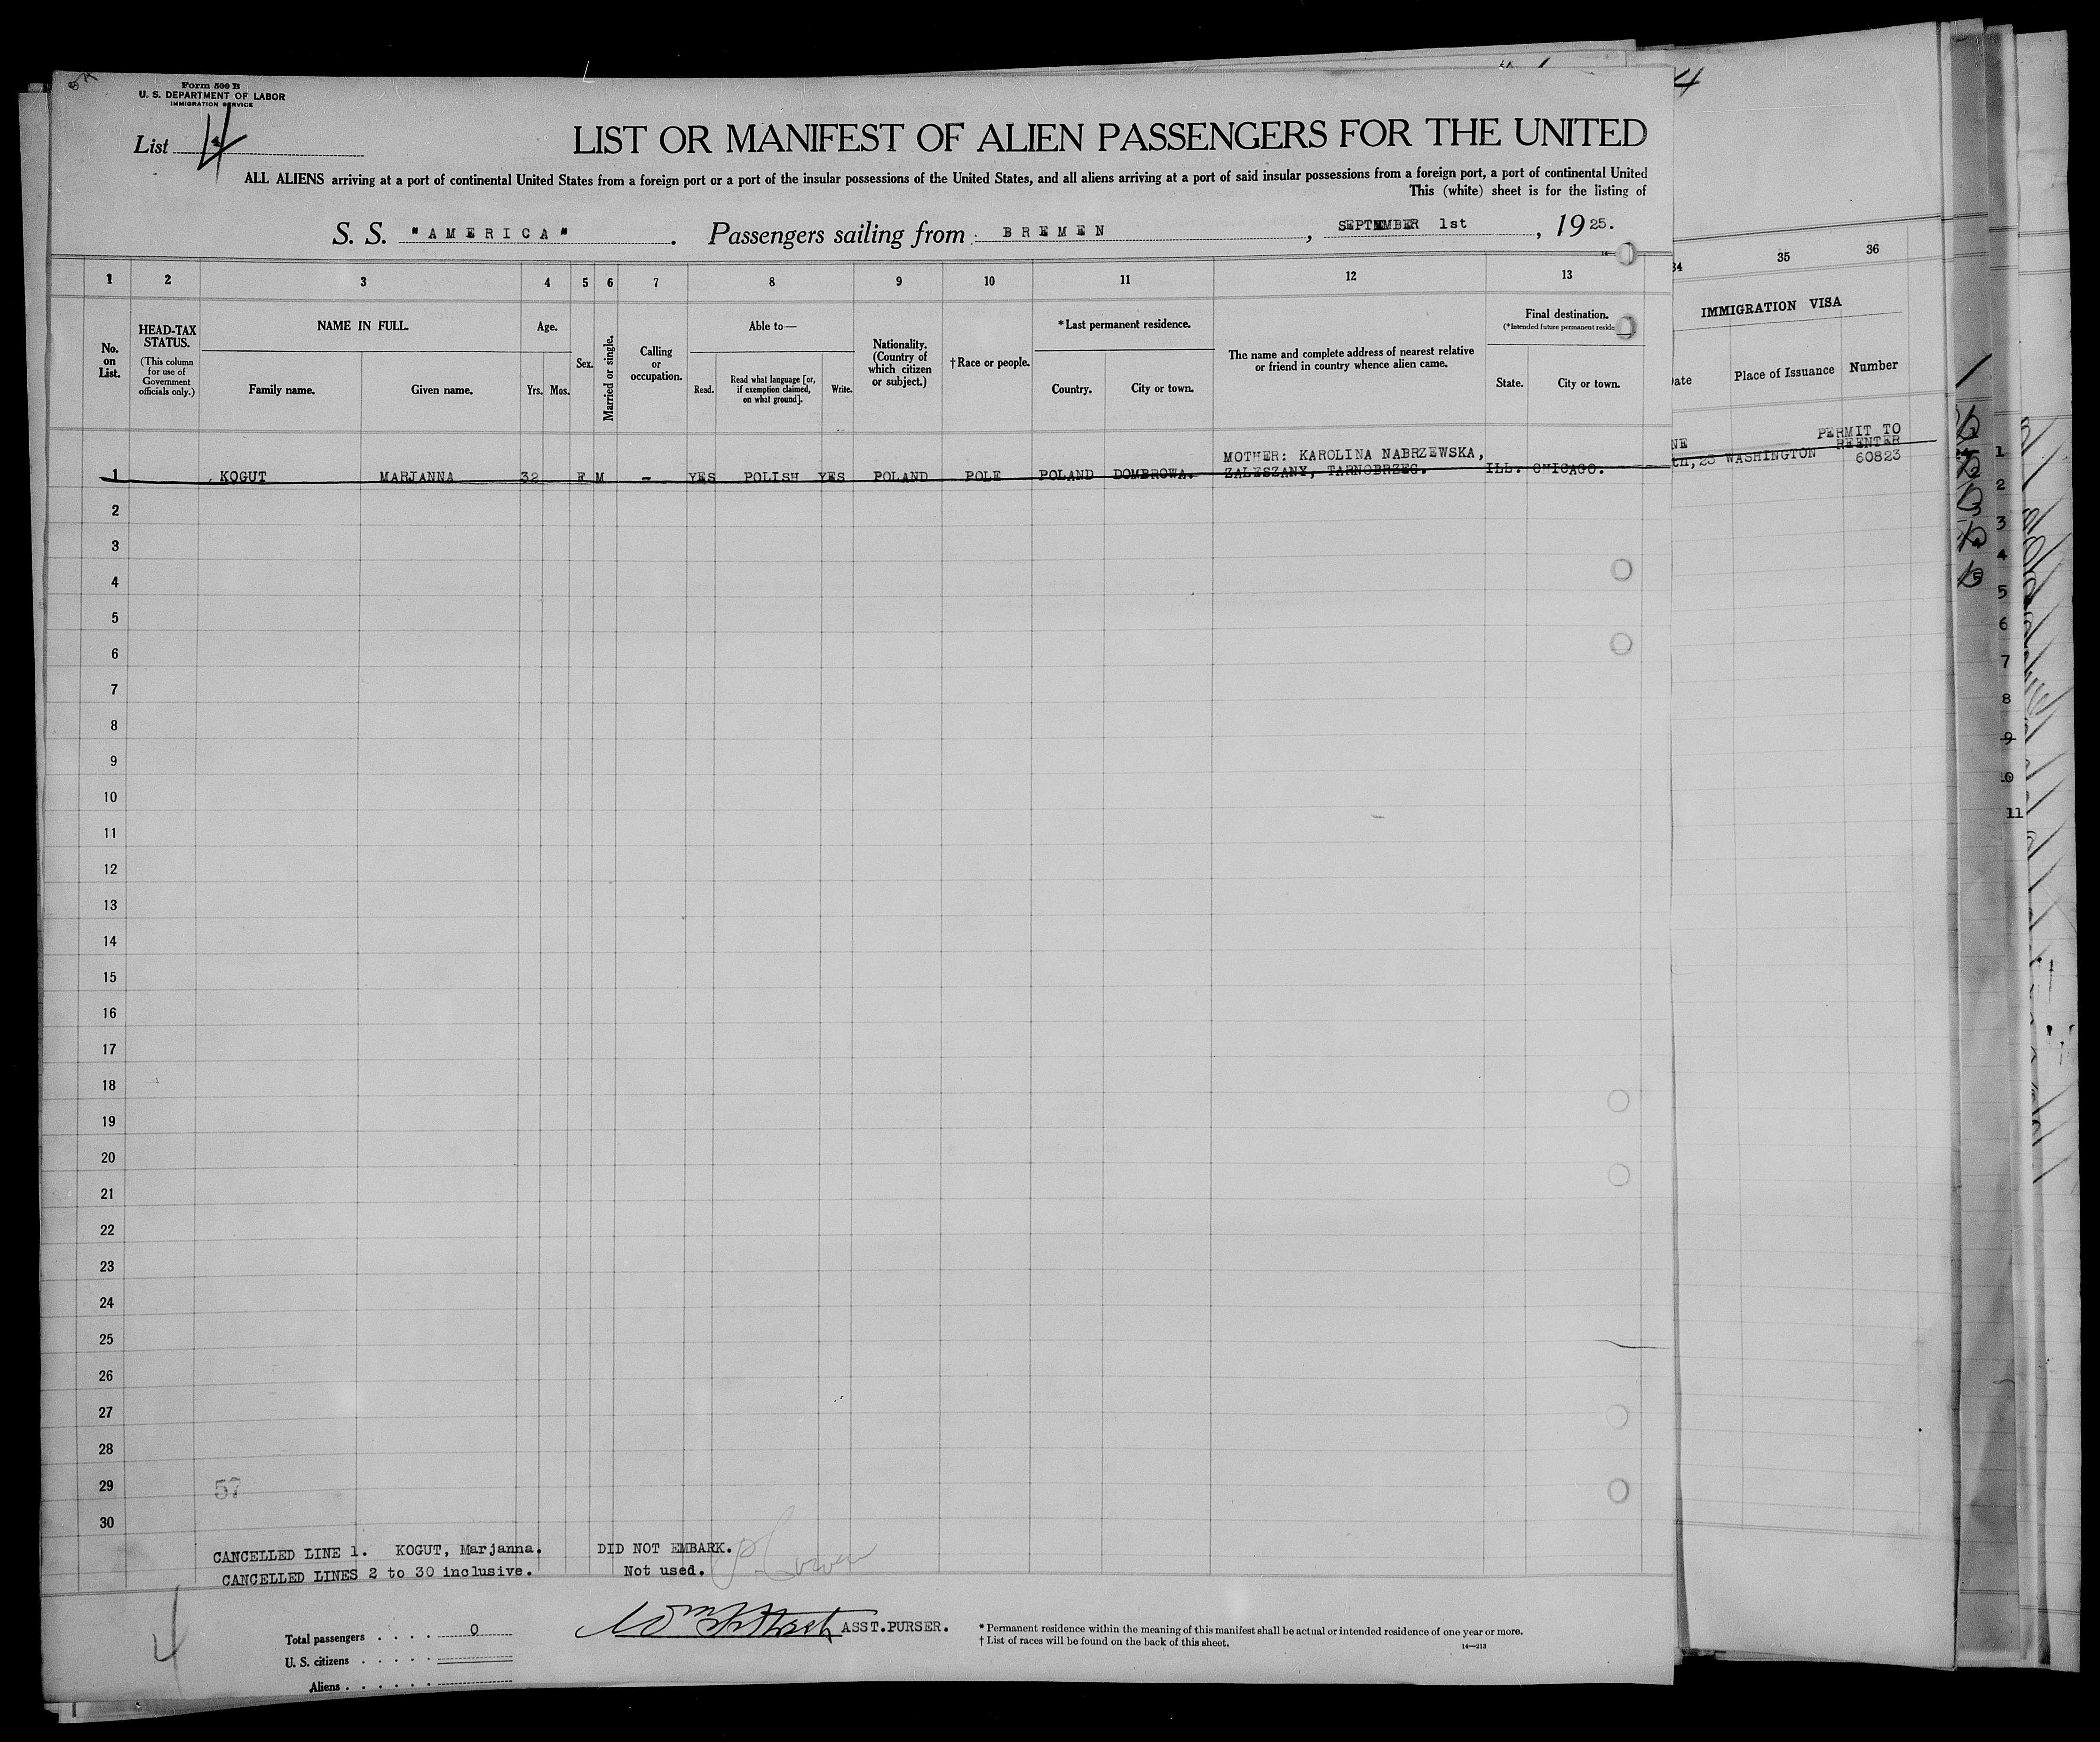 Form 500 B
U. S. DEPARTMENT OF LABOR
IMMIGRATION SERVICE
List 4
LIST OR MANIFEST OF ALIEN PASSENGERS FOR THE UNITED
ALL ALIENS arriving at a port of continental United States from a foreign port or a port of the insular possessions of the United States, and all aliens arriving at a port of said insular possessions from a foreign port, a port of continental United
This (white) sheet is for the listing of
S. S. "AMERICA" . Passengers sailing from BREMEN , SEPTEMBER 1st , 1925.
1 2 3 4 5 6 7 8 9 10 11 12 13
No. on List.
HEAD-TAX STATUS.
(This column for use of Government officials only.)
NAME IN FULL.
Family name. Given name.
Age.
Yrs. Mos.
Sex.
Married or single.
Calling or occupation.
Able to—
Read. Read what language [or, if exemption claimed, on what ground]. Write.
Nationality. (Country of which citizen or subject.)
†Race or people.
*Last permanent residence.
Country. City or town.
The name and complete address of nearest relative or friend in country whence alien came.
Final destination.
(*Intended future permanent
State. City or town.
34 35 36
IMMIGRATION VISA
Place of Issuance Number
MOTHER: KAROLINA NABRZEWSKA,
1 KOGUT MARJANNA 32 F M - YES POLISH YES POLAND POLE POLAND DOMBROWA. ZALESZANY, TARNOBRZEG. ILL. CHICAGO.
PERMIT TO
REENTER
WASHINGTON 60823
2
3
4
5
6
7
8
9
10
11
12
13
14
15
16
17
18
19
20
21
22
23
24
25
26
27
28
29 57
30
CANCELLED LINE 1. KOGUT, Marjanna. DID NOT EMBARK.
CANCELLED LINES 2 to 30 inclusive. Not used.
4
Total passengers . . . . 0
U. S. citizens . . . . .
Aliens . . . . . .
ASST.PURSER.
* Permanent residence within the meaning of this manifest shall be actual or intended residence of one year or more.
† List of races will be found on the back of this sheet.
14—213
4
1
2
3
4
5
6
7
8
9
10
11